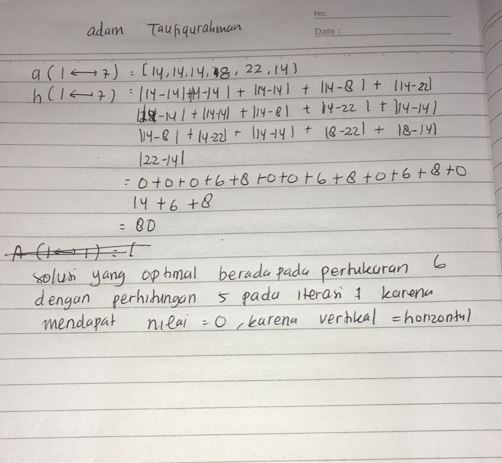 No.
Date:
adam Taufiqurahman
a(1↔7) = [14,14,14,8,22,14)
h(1↔7) = |14-14|+|14-14| + |14-14| + |14-8| + |14-22|
|14-14| + |14-14| + |14-8| + |14-22| + |14-14|
|14-8| + |14-22| + |14-14| + |8-22| + |8-14|
|22-14|
= 0+0+0+6+8+0+0+6+8+0+6+8+0
14+6+8
= 80
A (1↔1) = [
solusi yang optimal berada pada pertukaran 6
dengan perhitungan 5 pada iterasi 1 karena
mendapat nilai = 0, karena vertikal = horizontal